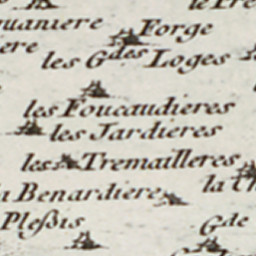 Forge
les Gdes Loges
les Foucaudieres
les Jardieres
les Tremailleres
Benardiere
la
Pleſsis
Gde